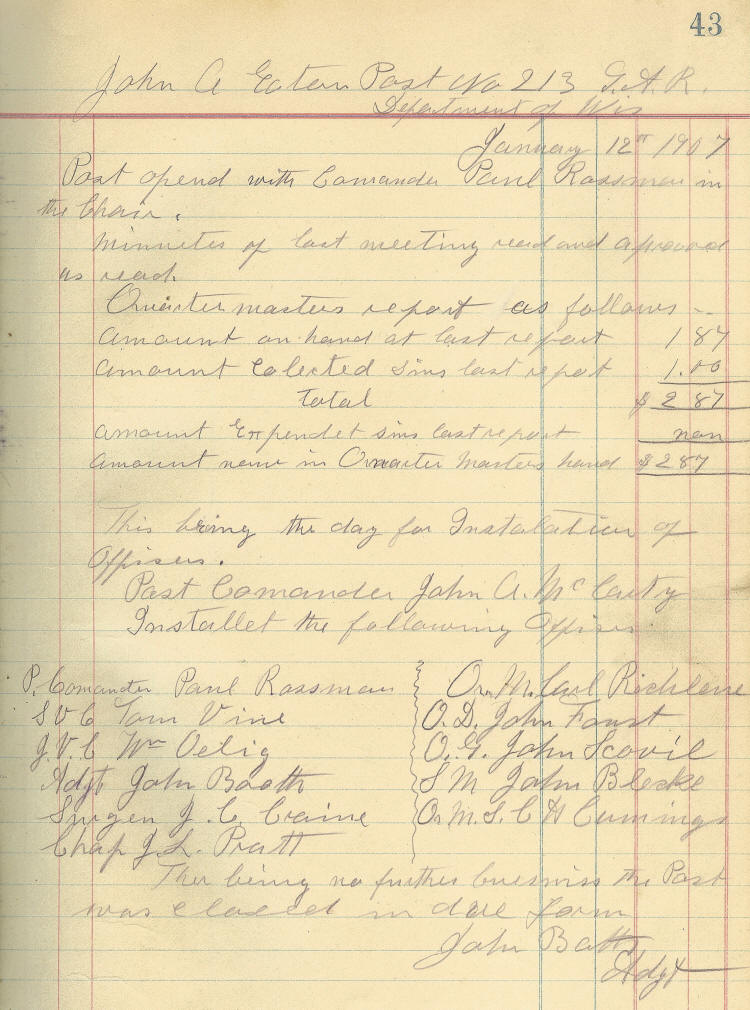 43
John A Eaton Post No 213 G.A.R.
Department of Wis
January 12" 1907
Post opend with Comander Paul Rossman in
the Chair.
Minnutes of last meeting read and aproved
as read.
Quartermasters report as follows --
amount on hand at last report 1 87
amount Colected sins last report 1.00
total $ 2 87
amount Expendet sins last report non
amount now in Quarter Masters hand $ 2 87
This being the day for Instalation of
Offisers.
Past Comander John A. McCarty
Installet the following Offisers
P. Comander Paul Rossman
S V C Tom Vine
J. V. C Wm Oelig
Adjt John Booth
Surgen J. C. Craine
Chap J. L. Pratt
Qr. M. Carl
O. D. John Foust
O. G. John Scovil
S M John Bleske
Qr M. S. C H Cumings
Ther being no further buisniss the Post
was closed in due form
John
Adjt